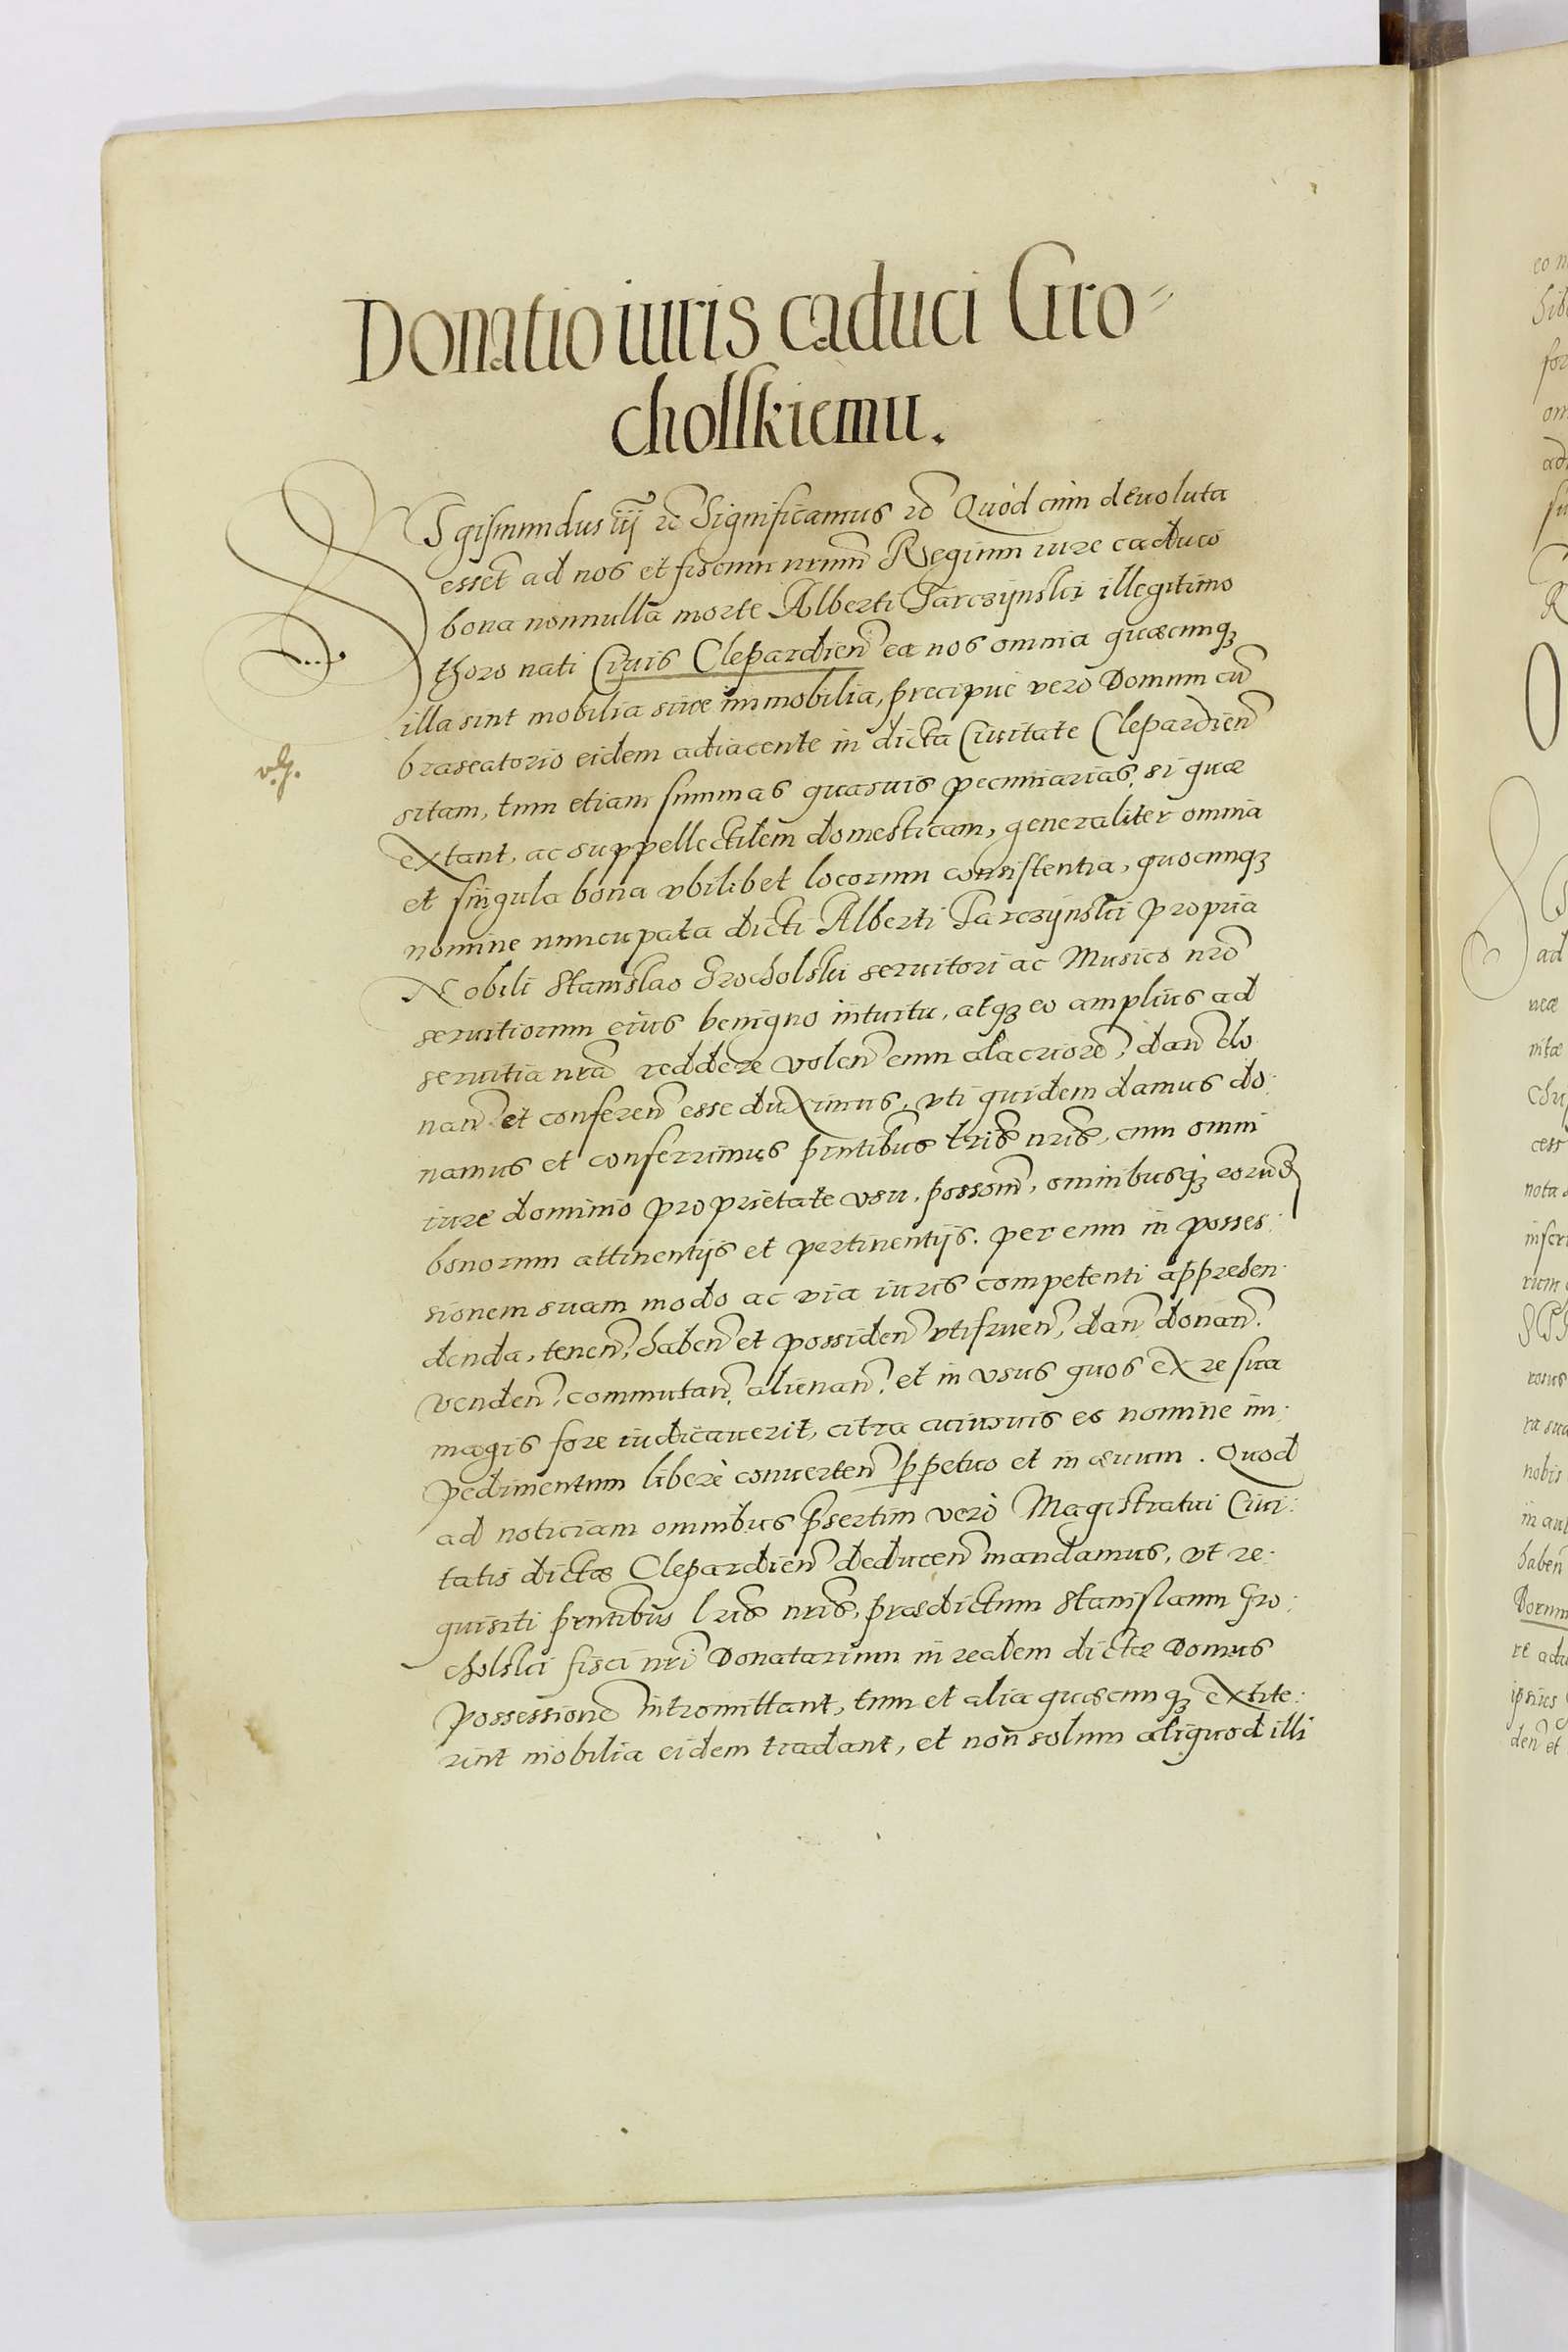 Donatio iuris caduci Gro=
chollskiemu.
Sigismundus iij etc Significamus etc Quòd cum deuoluta
essēt ad nos et fiscum nrum̃ Regium iure caduco
bona nonnulla morte Alberti Tarczÿnski illegitimo
thoro nati Ciuis Clepardien̄ ea nos omnia quæcunqꝫ
illa sint mobilia siue immobilia, præcipuè verò Domum cū
braseatorio eidem adiacente in dicta Ciuitate Clepardien̄
sitam, tum etiam summas quasuis pecuniarias, si quæ
extant, ac suppellectilem domesticam, generaliter omnia
et singula bona vbilibet locorum consistentia, quocunqꝫ
nomine nuncupata dicti Alberti Tarczÿnski propria
Nobili Stanislao Grocholski seruitori ac Musico nrō
seruitiorum eius benigno intuitu, atqꝫ eo amplius ad
seruitia nrā reddere volen̄ eum alacriorē, dan̄ do
nan̄ et conferen̄ esse duximus, vti quidem damus do:
namus et conferrimus pn̄tibus lris̄ nris̄, cum omni
iure dominio proprietate vsu, possōne, omnibusqꝫ eorund
bonorum attinentijs et pertinentijs. per eum in posses:
sionem suam modo ac via iuris competenti apprehen:
denda, tenen̄, haben̄ et possiden̄ vtifruen̄, dan̄ donan̄.
venden̄, commutan̄, alienan̄, et in vsus quos ex re sua
magis fore iudicauerit, citra cuiusuis eo nomine im:
pedimentum liberè conuerten̄ ꝑpetuo et in æuum. Quod
ad noticiam omnibus pṣertim verò Magistratui Ciui:
tatis dictæ Clepardien̄ deducen̄ mandamus, vt re:
quisiti pn̄tibus lris̄ nris̄, prædictum Stanislaum Gro:
cholski fisci nrī Donatarium in realem dictæ Domus
possessionē intromittant, tum et alia quæcunqꝫ extite:
rint mobilia eidem tradant, et non solum aliquod illi